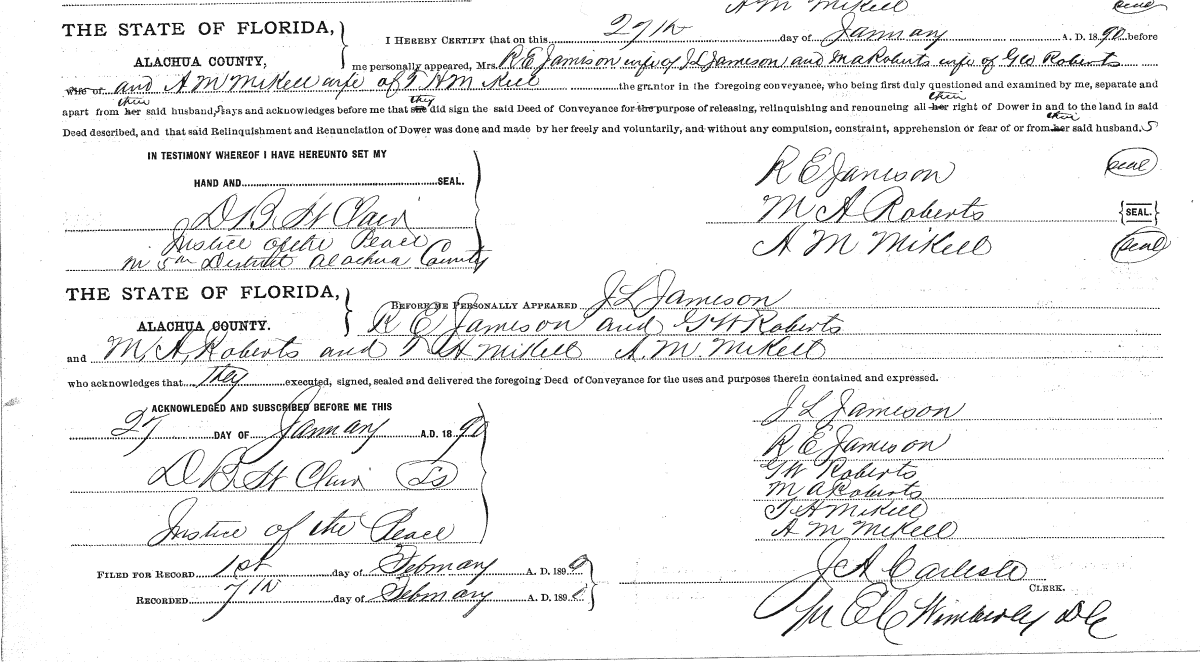 A M Mikell seal
THE STATE OF FLORIDA,
ALACHUA COUNTY,
I HEREBY CERTIFY that on this 27th day of January A. D. 18 90 before
me personally appeared, Mrs. R E Jameson wife of J L Jameson and M A Roberts wife of Geo Roberts
wife of and A M Mikell wife of T H Mikell the grantor in the foregoing conveyance, who being first duly questioned and examined by me, separate and
apart from her their said husbands, says and acknowledges before me that she they did sign the said Deed of Conveyance for the purpose of releasing, relinquishing and renouncing all her their right of Dower in and to the land in said
Deed described, and that said Relinquishment and Renunciation of Dower was done and made by her freely and voluntarily, and without any compulsion, constraint, apprehension or fear of or from her their said husband, s
IN TESTIMONY WHEREOF I HAVE HEREUNTO SET MY
HAND AND SEAL.
D B St Clair
Justice of the Peace
in 5th District Alachua County
R E Jameson seal
M A Roberts {SEAL.}
A M Mikell seal
THE STATE OF FLORIDA,
ALACHUA COUNTY.
BEFORE ME PERSONALLY APPEARED J L Jameson
R E Jameson and G W Roberts
and M A Roberts and T H Mikell A. M. Mikell
who acknowledges that They executed, signed, sealed and delivered the foregoing Deed of Conveyance for the uses and purposes therein contained and expressed.
ACKNOWLEDGED AND SUBSCRIBED BEFORE ME THIS
27 DAY OF January A.D. 18 90
D B St Clair LS
Justice of the Peace
J L Jameson
R E Jameson
G W Roberts
M A Roberts
T H Mikell
A M Mikell
FILED FOR RECORD 1st day of February A. D. 189 0
RECORDED 7th day of February A. D. 189 0
J A Carlisle
CLERK.
Pr E C Wimberly D C